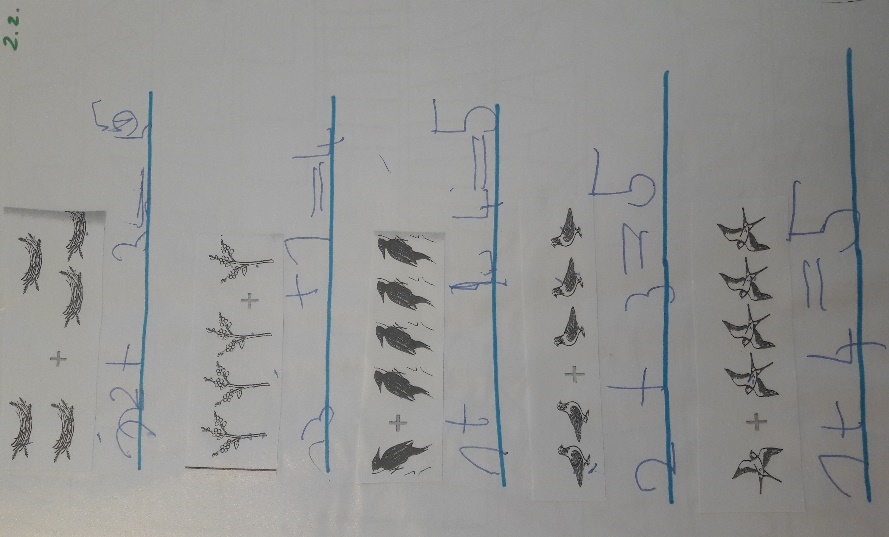 2.2.
+
2 + 3 = 5
+
3 + 1 = 4
+
1 + 4 = 5
+
2 + 3 = 5
+
1 + 4 = 5